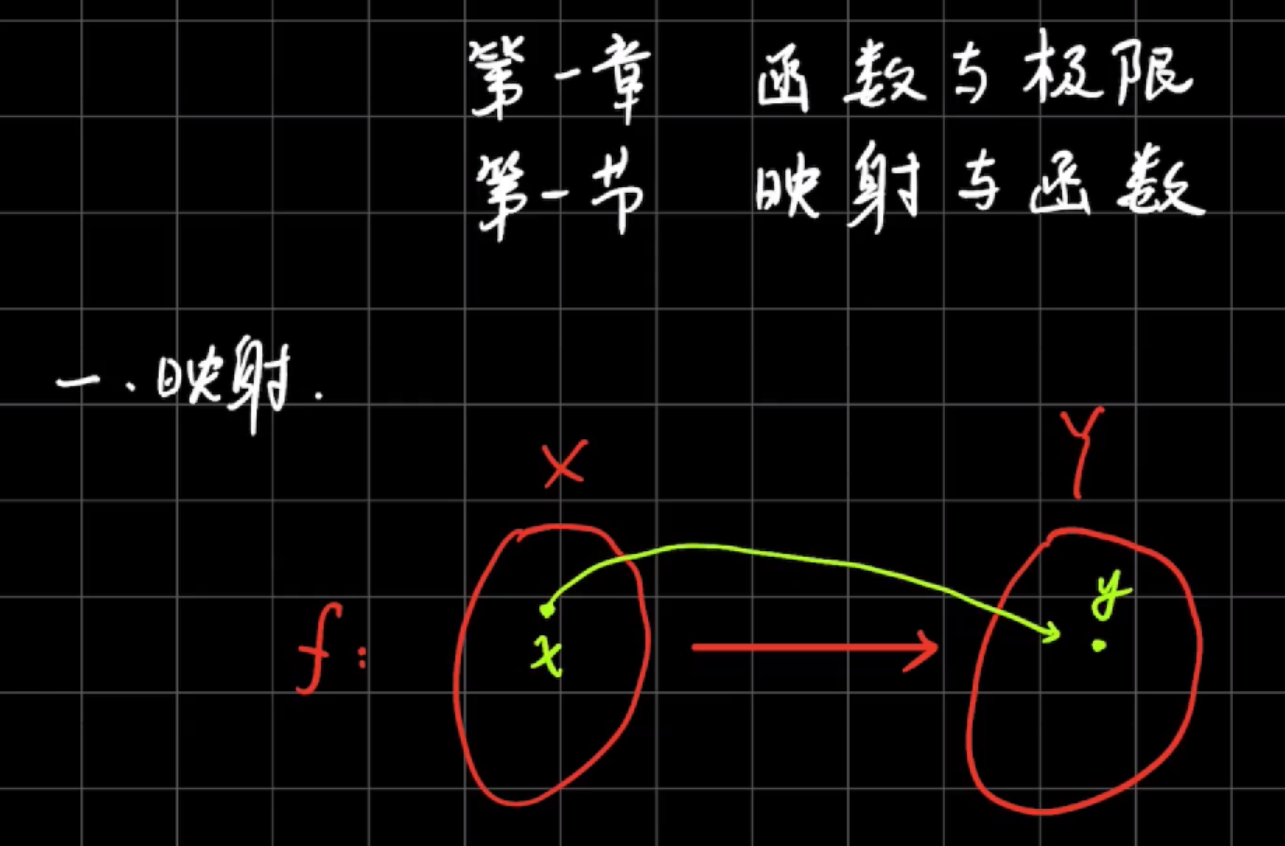 第一章 函数与极限
第一节 映射与函数
一、映射.
X Y
y
f:
x